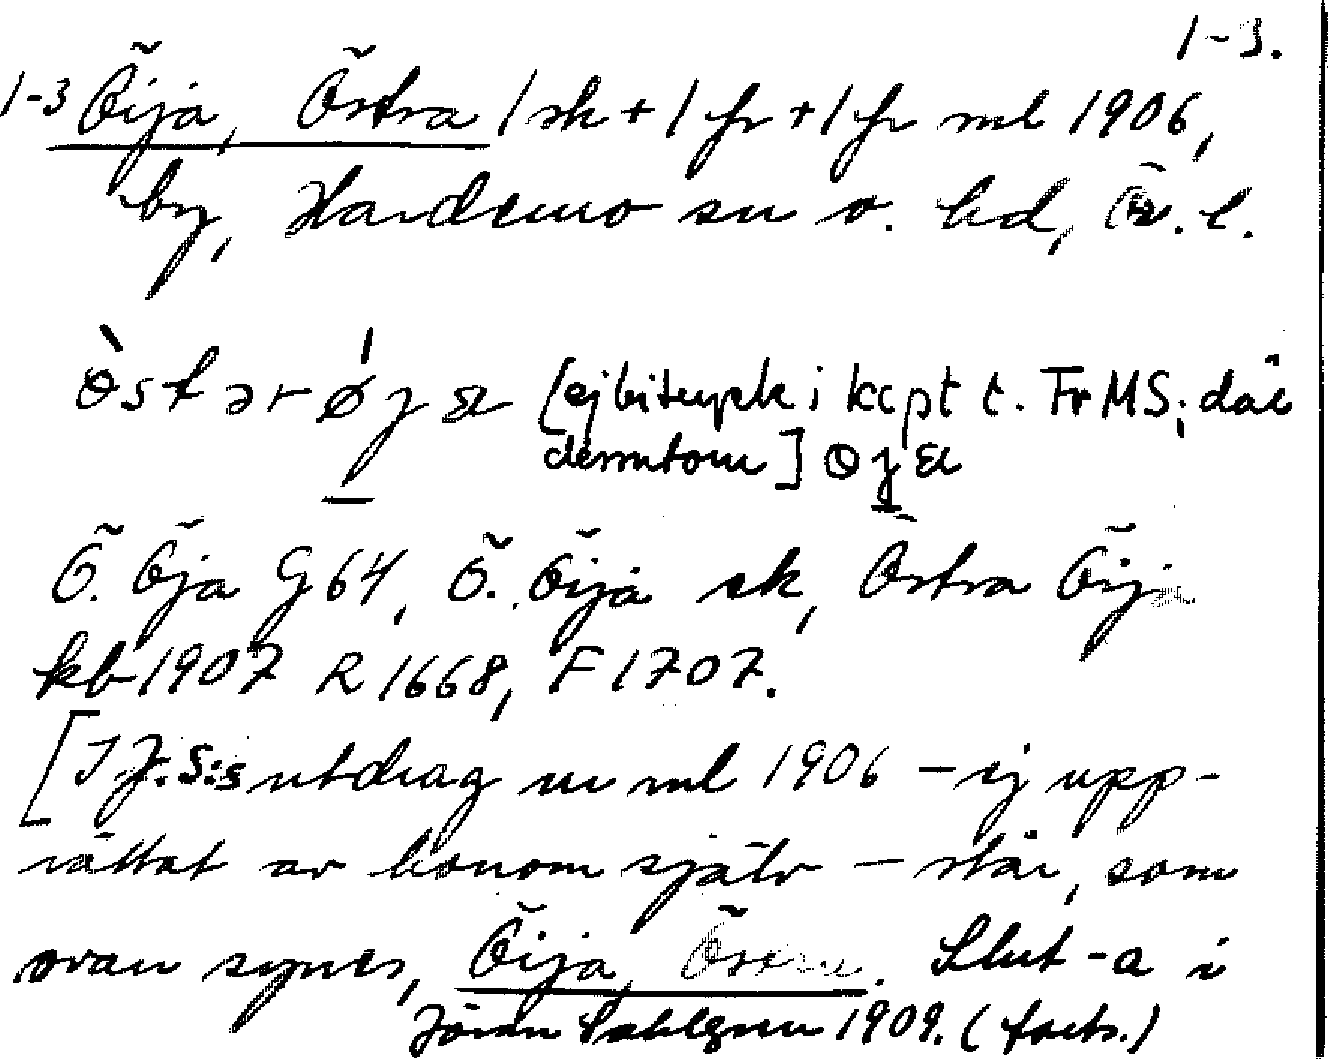 1-3.
1-3 Öija, Östra 1 sk + 1 fr + 1 fr ml 1906,
by, Hardemo sn o. hd, Ör. l.
òstərøjа [ej bitryck i kcpt t. Fr MS; där
dessutom] öja
Ö. Öja G 64, Ö. Öija sk, Östra Öija
kb 1907 R 1668, F 1707.
[I J. S:s utdrag ur ml 1906 – ej upp-
rättat av honom själv – står, som
ovan synes, Öija, Östra. Slut -a i
Jöran Sahlgren 1909. (forts.)